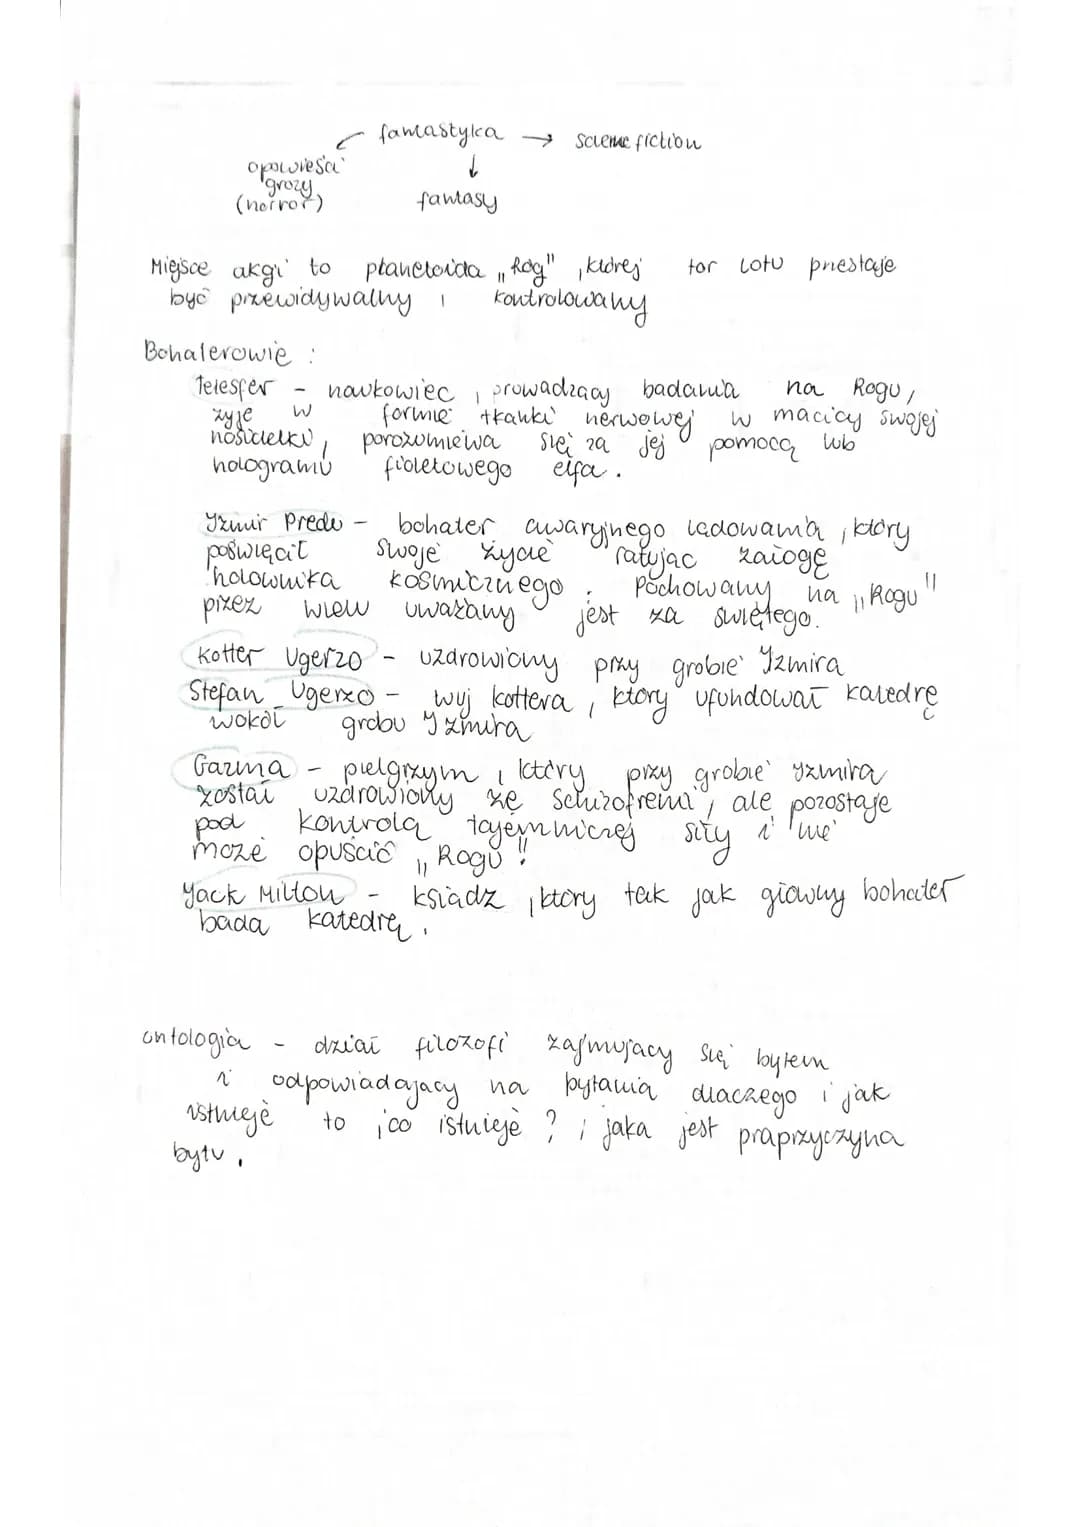 fantastyka → science fiction
opowieści
grozy
(horror)
fantasy
Miejsce akcji to planetoida „Róg", której tor lotu przestaje
być przewidywalny i kontrolowany
Bohaterowie :
Telesfer - naukowiec, prowadzący badania na Rogu,
żyje w formie tkanki nerwowej w macicy swojej
nosicielki, porozumiewa się za jej pomocą lub
hologramu fioletowego elfa.
Izmir Predu - bohater awaryjnego lądowania, który
poświęcił swoje życie ratując załogę
holownika kosmicznego. Pochowany na „Rogu"
przez wielu uważany jest za świętego.
Kotter Ugerzo - uzdrowiony przy grobie Izmira
Stefan Ugerzo - wuj Kottera, który ufundował katedrę
wokół grobu Izmira
Gazma - pielgrzym, który przy grobie Izmira
został uzdrowiony ze schizofremi, ale pozostaje
pod kontrolą tajemniczej siły i nie
może opuścić „Rogu".
Jack Milton - ksiądz, który tak jak główny bohater
bada katedrę.
ontologia - dział filozofi zajmujący się bytem
i odpowiadajacy na pytania dlaczego i jak
istnieje to, co istnieje? i jaka jest praprzyczyna
bytu.